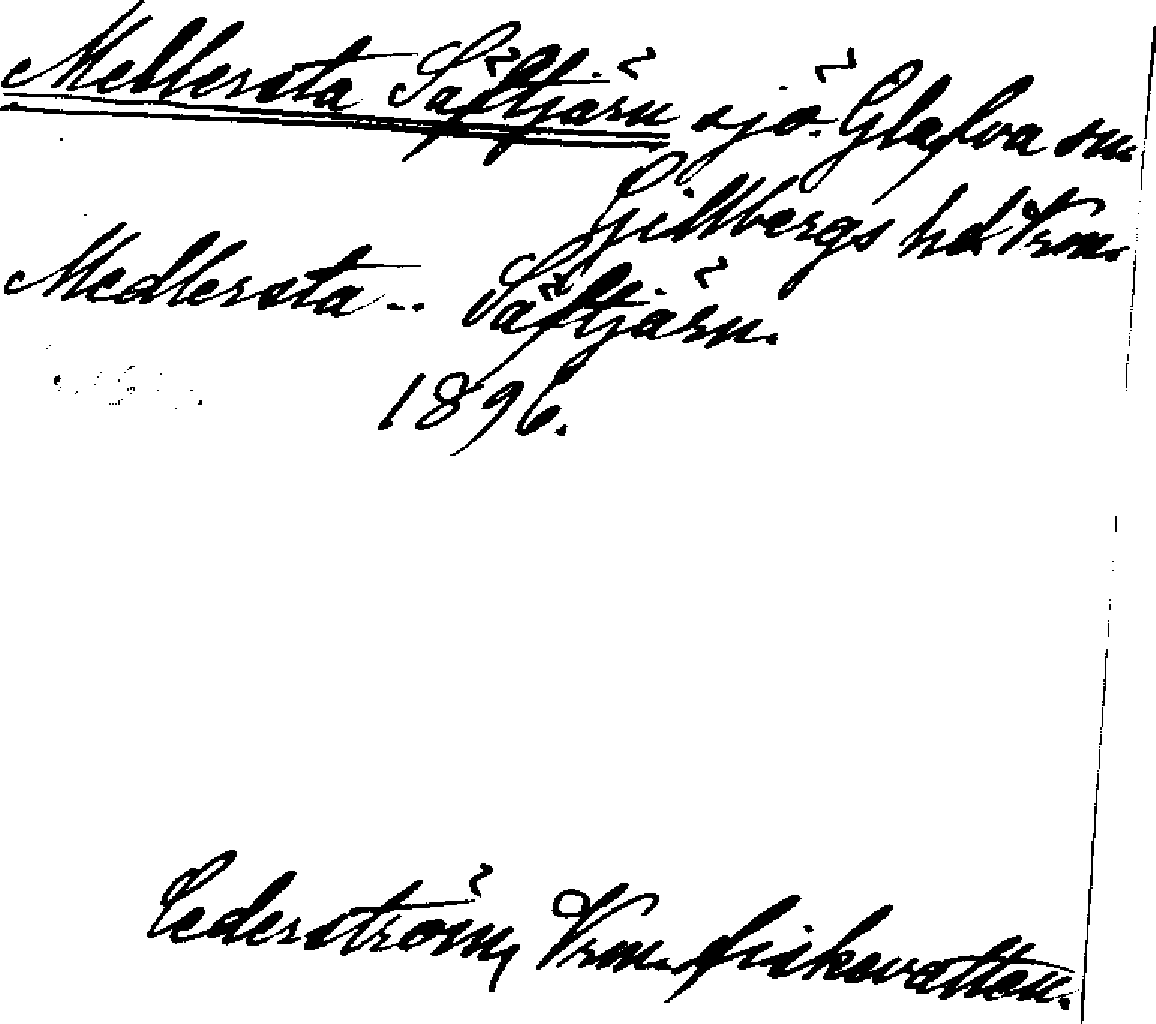 Mellersta Säftjärn sjö. Glafva sn.
Gillbergs hd Vrm.
Medlersta -- Säftjärn.
1896.
Cederström, Vrm. fiskevatten.